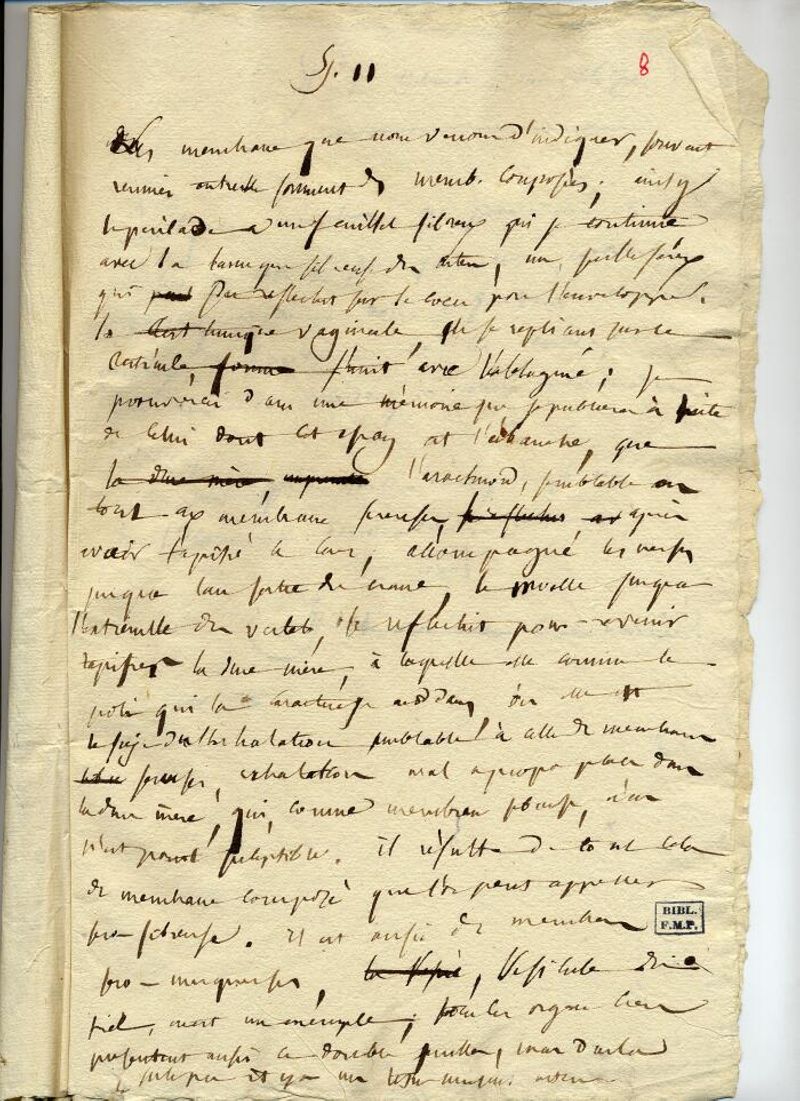 §. 11
8
Les membrane que nous venons d'indiquer, souvent
reunies entre elle forment des memb. composées; ainsy
le pericarde a un feuillet fibreux qui se continue
avec la tunique fibreuse des arteres, un feuillet séreux
qui se reflechit sur le coeur pour l'envelopper.
la tunique vaginale, se repliant sur le
testicule s'unit avec l'albuginé; je
prouverai dans une mémoire que je publierai à suite
de celui dont cet essay est l'ebauche, que
la dure mère l'arachnoid, semblable en
tout aux membrane sereuses, après
avoir tapissé le cerv, accompagné les nerfs
jusqua leur sortie du crane, la moelle jusqua
l'extrémité des verteb, se reflechit pour revenir
tapisser la dure mère, à laquelle elle donne le
poli qui la caracterise au dedans, ou elle est
le siège d'une exhalation semblable à celle des membrane
sereuses, exhalation mal apropos placé dans
la dure mère, qui, comme membrane fibreuse, n'en
n'est point susceptible. il résulte de tout cela
des membrane composé que l'on peut appeller
sero-fibreuse. Il est aussi des membrane
sero-muqueuses, la vesicule du
fiel, en est un exemple; tous les organe creux
presentent aussi ce double feuillet, mais dans la
BIBL.
F.M.P.